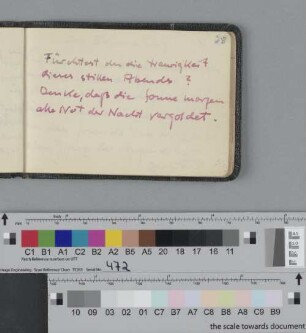 28
Fürchtest du die Traurigkeit
dieses stillen Abends?
Denke, daß die Sonne morgen
alle Not der Nacht vergoldet.
C1 B1 A1 C2 A2 B5 A5 20 18 17 16 11
472
10 09 03 02 01 C7 B7 A7 C8 B8 A8 C9 B9
the scale towards document